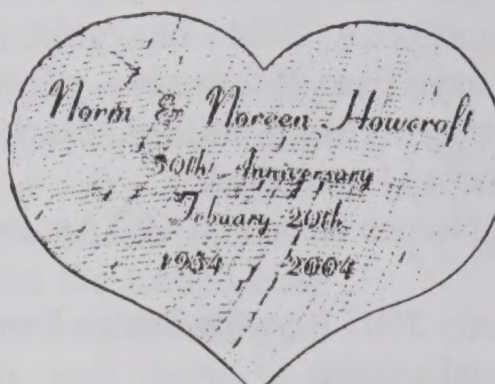 Norm & Noreen Howcroft
50th Anniversary
Febuary 20th
1954 2004